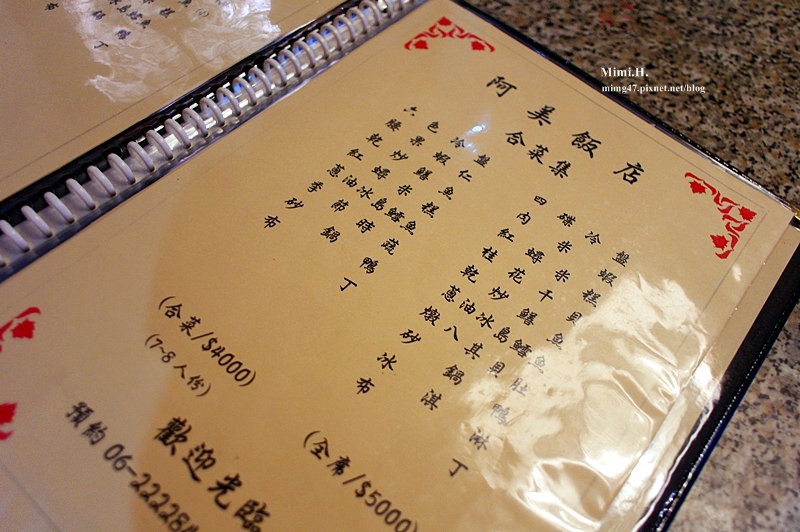 Mimi.H.
mimg47.pixnet.net/blog
阿美飯店
合菜集
六色冷盤
腰果蝦仁
乾炒鱔魚
紅蟳米糕
蔥油冰島鱈魚
季節時蔬
砂鍋鴨
布丁
(合菜/$4000)
(7~8人份)
四碟冷盤
肉米蝦
紅蟳米糕
桂花干貝
乾炒鱔魚
蔥油冰島鱈魚
燉八其貝肚
砂鍋鴨
冰淇淋
布丁
(全席/$5000)
歡迎光臨
預約 06-22228